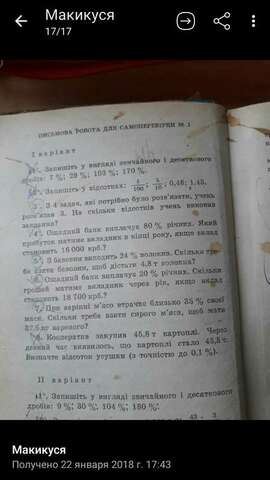 Макикуся
17/17
ПИСЬМОВА РОБОТА ДЛЯ САМОПЕРЕВІРКИ № 1
I варіант
Запишіть у вигляді звичайного і десяткового
дробів: 7 %; 29 %; 103 %; 170 %.
Запишіть у відсотках: 1/100; 0,48; 1,45.
З 4 задач, які потрібно було розв'язати, учень
розв'язав 3. На скільки відсотків учень виконав
завдання?
Ощадний банк виплачує 80 % річних. Який
прибуток матиме вкладник в кінці року, якщо вклад
становить 16 000 крб.?
З бавовни виходить 24 % волокна. Скільки тре-
ба взяти бавовни, щоб дістати 4,8 т волокна?
Ощадний банк виплачує 20 % річних. Скільки
грошей матиме вкладник через рік, якщо вклад
становить 18 700 крб.?
При варінні м'ясо втрачає близько 35 % своєї
маси. Скільки треба взяти сирого м'яса, щоб мати
вареного?
Кооператив закупив 45,8 т картоплі. Через
деякий час виявилось, що картоплі стало
Визначте відсоток усушки (з точністю до 0,1 %).
II варіант
Запишіть у вигляді звичайного і десяткового
дробів: 9 %; 30 %; 104 %; 180 %.
Макикуся
Получено 22 января 2018 г. 17:43